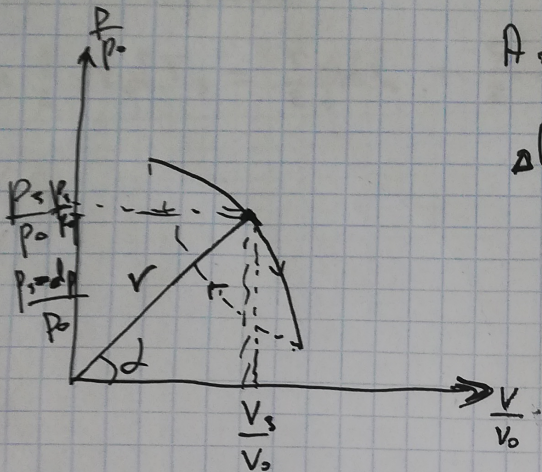 P
P₀
A
Δ
P₃
P₀
P₃-dP
P₀
r
α
V₃
V₀
V
V₀